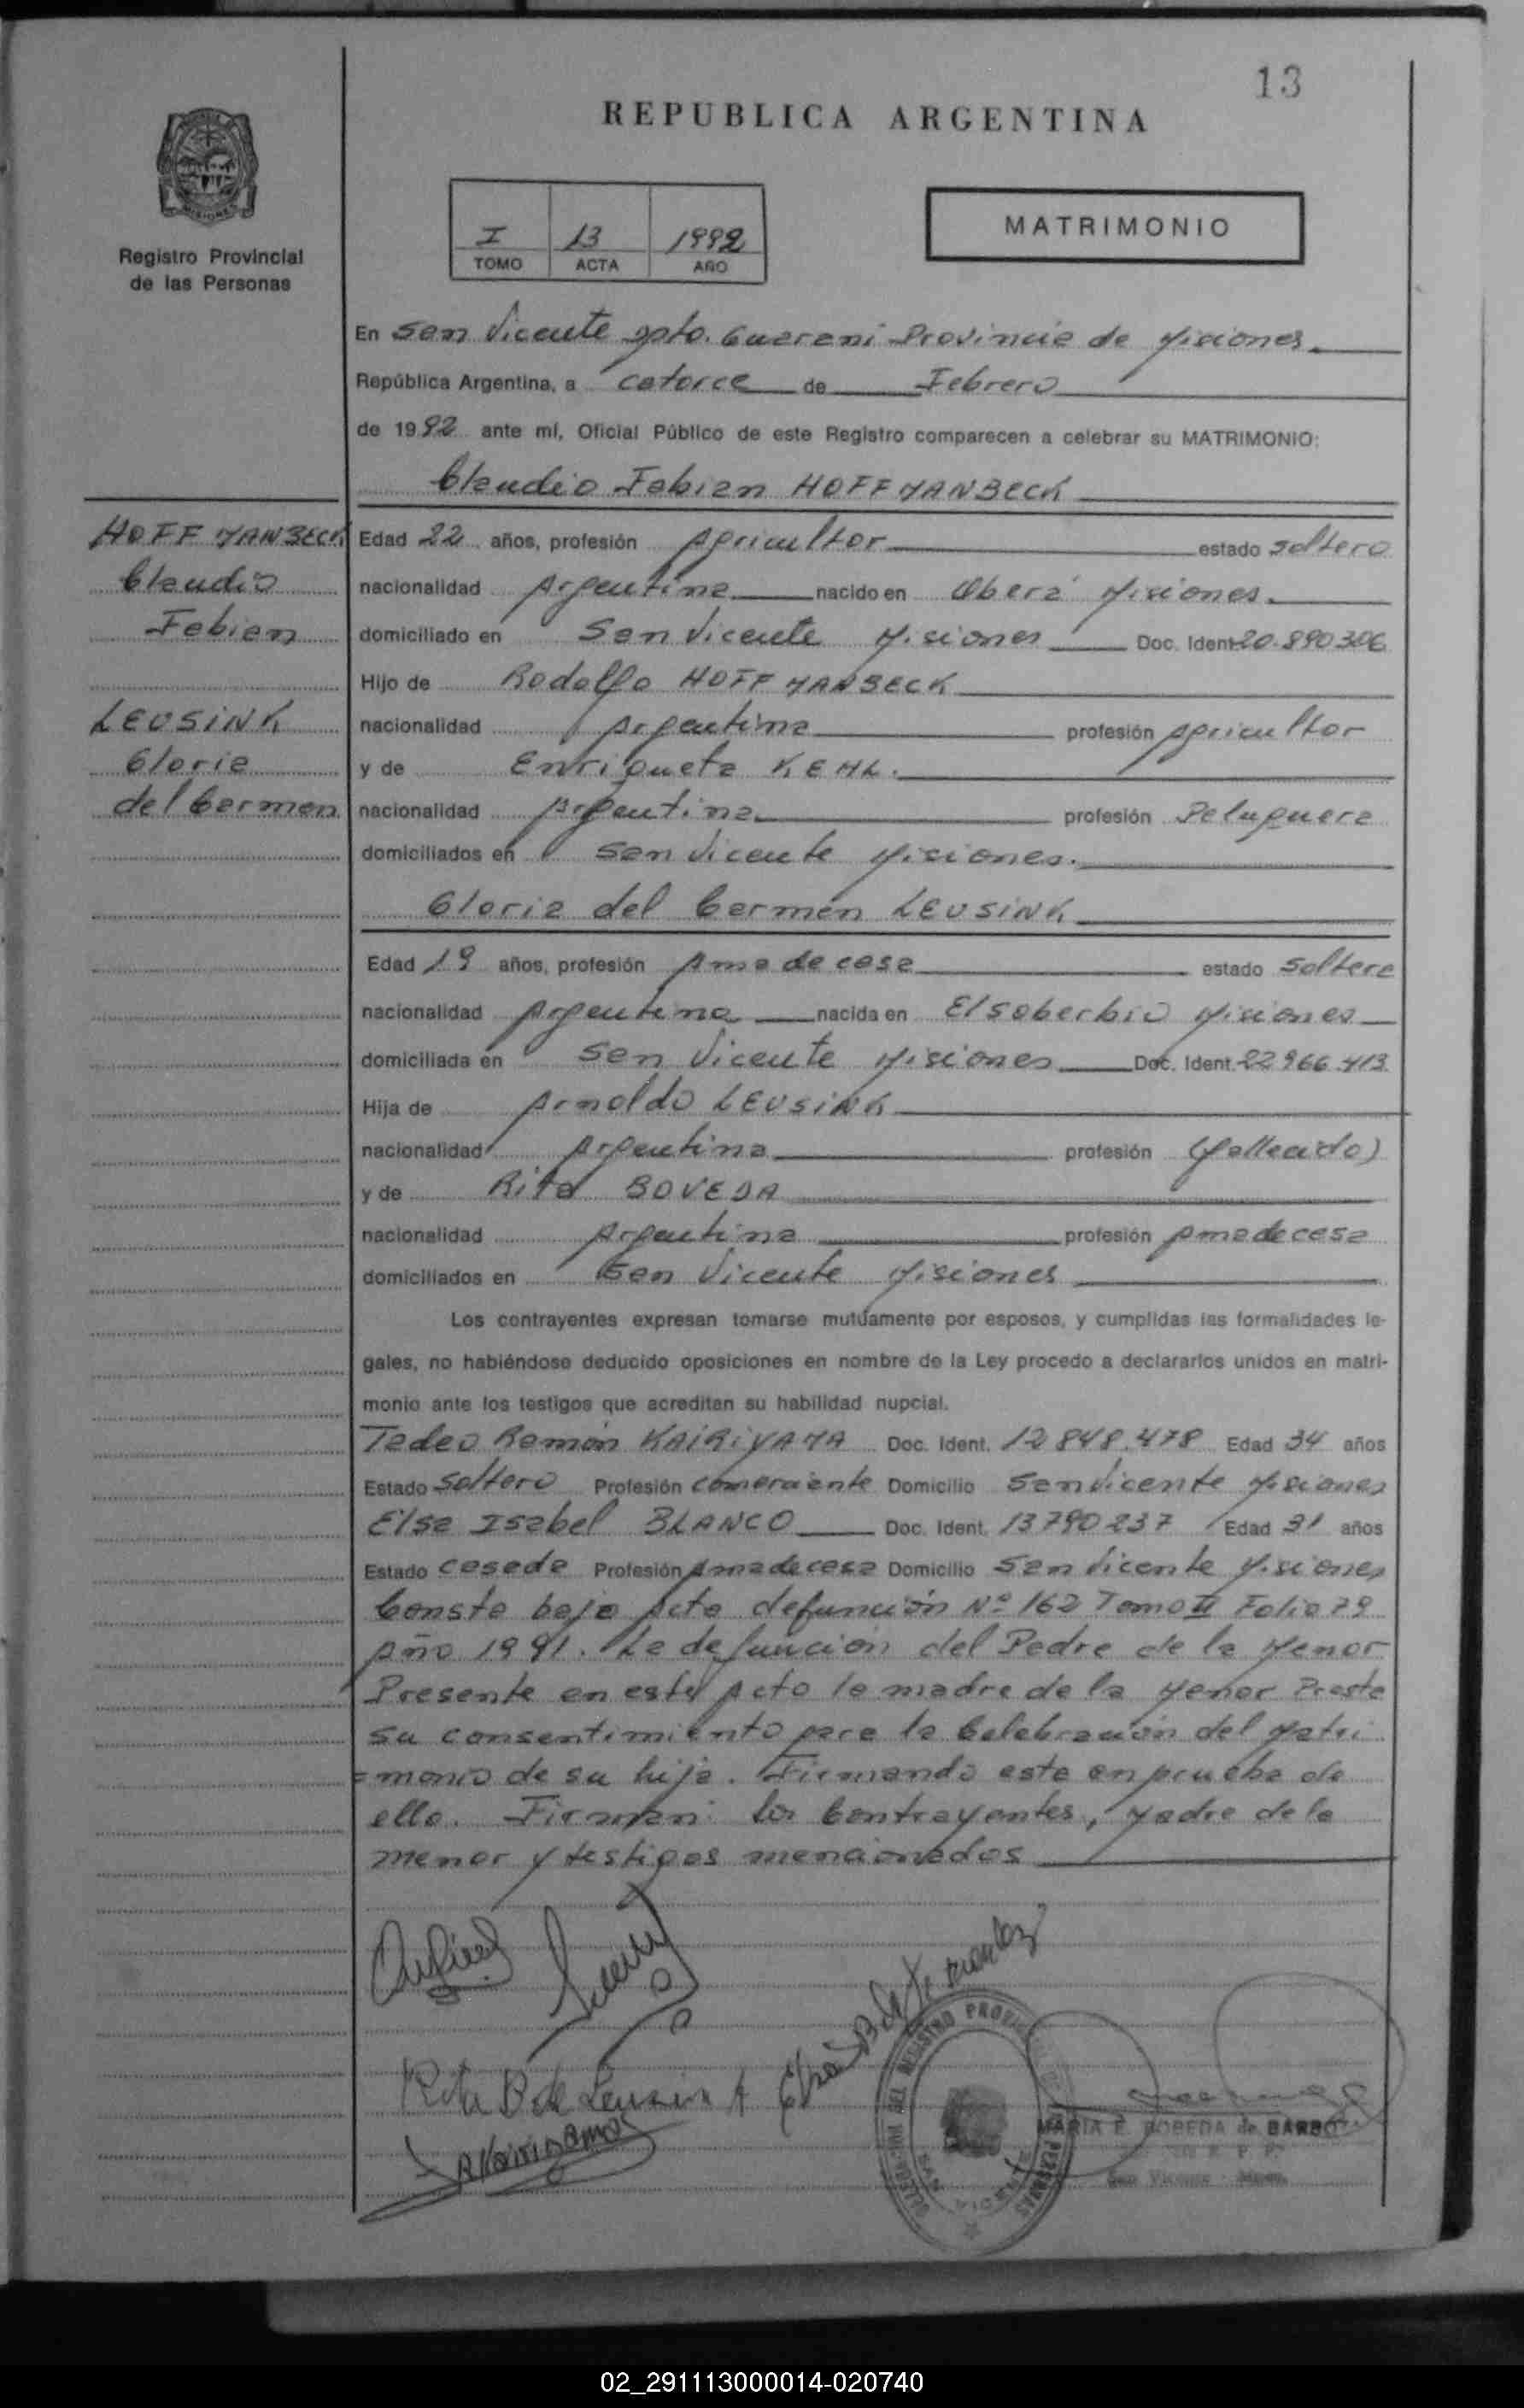 13
REPUBLICA ARGENTINA
MISIONES
Registro Provincial
de las Personas
I 13 1992
TOMO ACTA AÑO
MATRIMONIO
En San Vicente Dpto. Guarani Provincia de Misiones
República Argentina, a catorce de Febrero
de 1992 ante mí, Oficial Público de este Registro comparecen a celebrar su MATRIMONIO:
Claudio Fabian HOFFMANBECK
HOFFMANBECK
Claudio
Fabian
LEUSINK
Gloria
del Carmen
Edad 22 años, profesión Agricultor estado soltero
nacionalidad Argentina nacido en Oberá Misiones.
domiciliado en San Vicente Misiones Doc. Ident. 20.890306
Hijo de Rodolfo HOFFMANBECK
nacionalidad Argentina profesión Agricultor
y de Enriqueta KEHL.
nacionalidad Argentina profesión Peluquera
domiciliados en San Vicente Misiones.
Gloria del Carmen LEUSINK
Edad 19 años, profesión Ama de casa estado soltera
nacionalidad Argentina nacida en El soberbio Misiones
domiciliada en San Vicente Misiones Doc. Ident. 22966.413
Hija de Arnoldo LEUSINK
nacionalidad Argentina profesión (fallecido)
y de Rita BOVEDA
nacionalidad Argentina profesión Ama de casa
domiciliados en San Vicente Misiones
Los contrayentes expresan tomarse mutuamente por esposos, y cumplidas las formalidades le-
gales, no habiéndose deducido oposiciones en nombre de la Ley procedo a declararlos unidos en matri-
monio ante los testigos que acreditan su habilidad nupcial.
Tadeo Ramón KAIRIYAMA Doc. Ident. 12848.478 Edad 34 años
Estado Soltero Profesión comerciante Domicilio San Vicente Misiones
Elsa Isabel BLANCO Doc. Ident. 13790237 Edad 31 años
Estado casada Profesión Ama de casa Domicilio San Vicente Misiones
Consta bajo Acta defunción Nº 162 Tomo II Folio 79
Año 1991. La defunción del Padre de la Menor
Presente en este Acto la madre de la Menor Presta
su consentimiento para la Celebración del Matri
=monio de su hija. Firmando esta en prueba de
ello. Firman: los Contrayentes, Madre de la
menor y testigos mencionados
Rita B de Leusink
MARIA E. BOBEDA de BARBOZA
San Vicente - Mnes.
REGISTRO PROVINCIAL DE LAS PERSONAS
SAN VICENTE
02_291113000014-020740